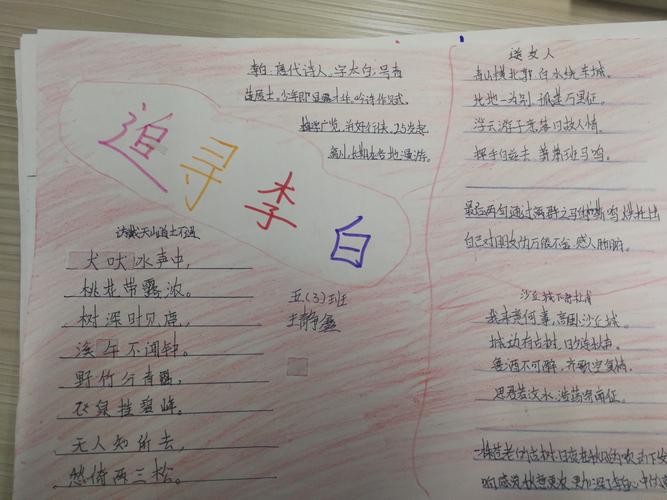 追寻李白
李白：唐代诗人，字太白，号青
莲居士。少年即显露才华，吟诗作赋，
博学广览，并好行侠。25岁起
离川，长期在各地漫游。
访戴天山道士不遇
犬吠水声中，
桃花带露浓。
树深时见鹿，
溪午不闻钟。
野竹分青霭，
飞泉挂碧峰。
无人知所去，
愁倚两三松。
五（3）班
王静
送友人
青山横北郭，白水绕东城。
此地一为别，孤蓬万里征。
浮云游子意，落日故人情。
挥手自兹去，萧萧班马鸣。
最后两句通过离群之马
自己对朋友 感人肺腑。
沙丘城下寄杜甫
我来竟何事，高卧沙丘城。
城边有古树，日夕连秋声。
鲁酒不可醉，齐歌空复情。
思君若汶水，浩荡寄南征。